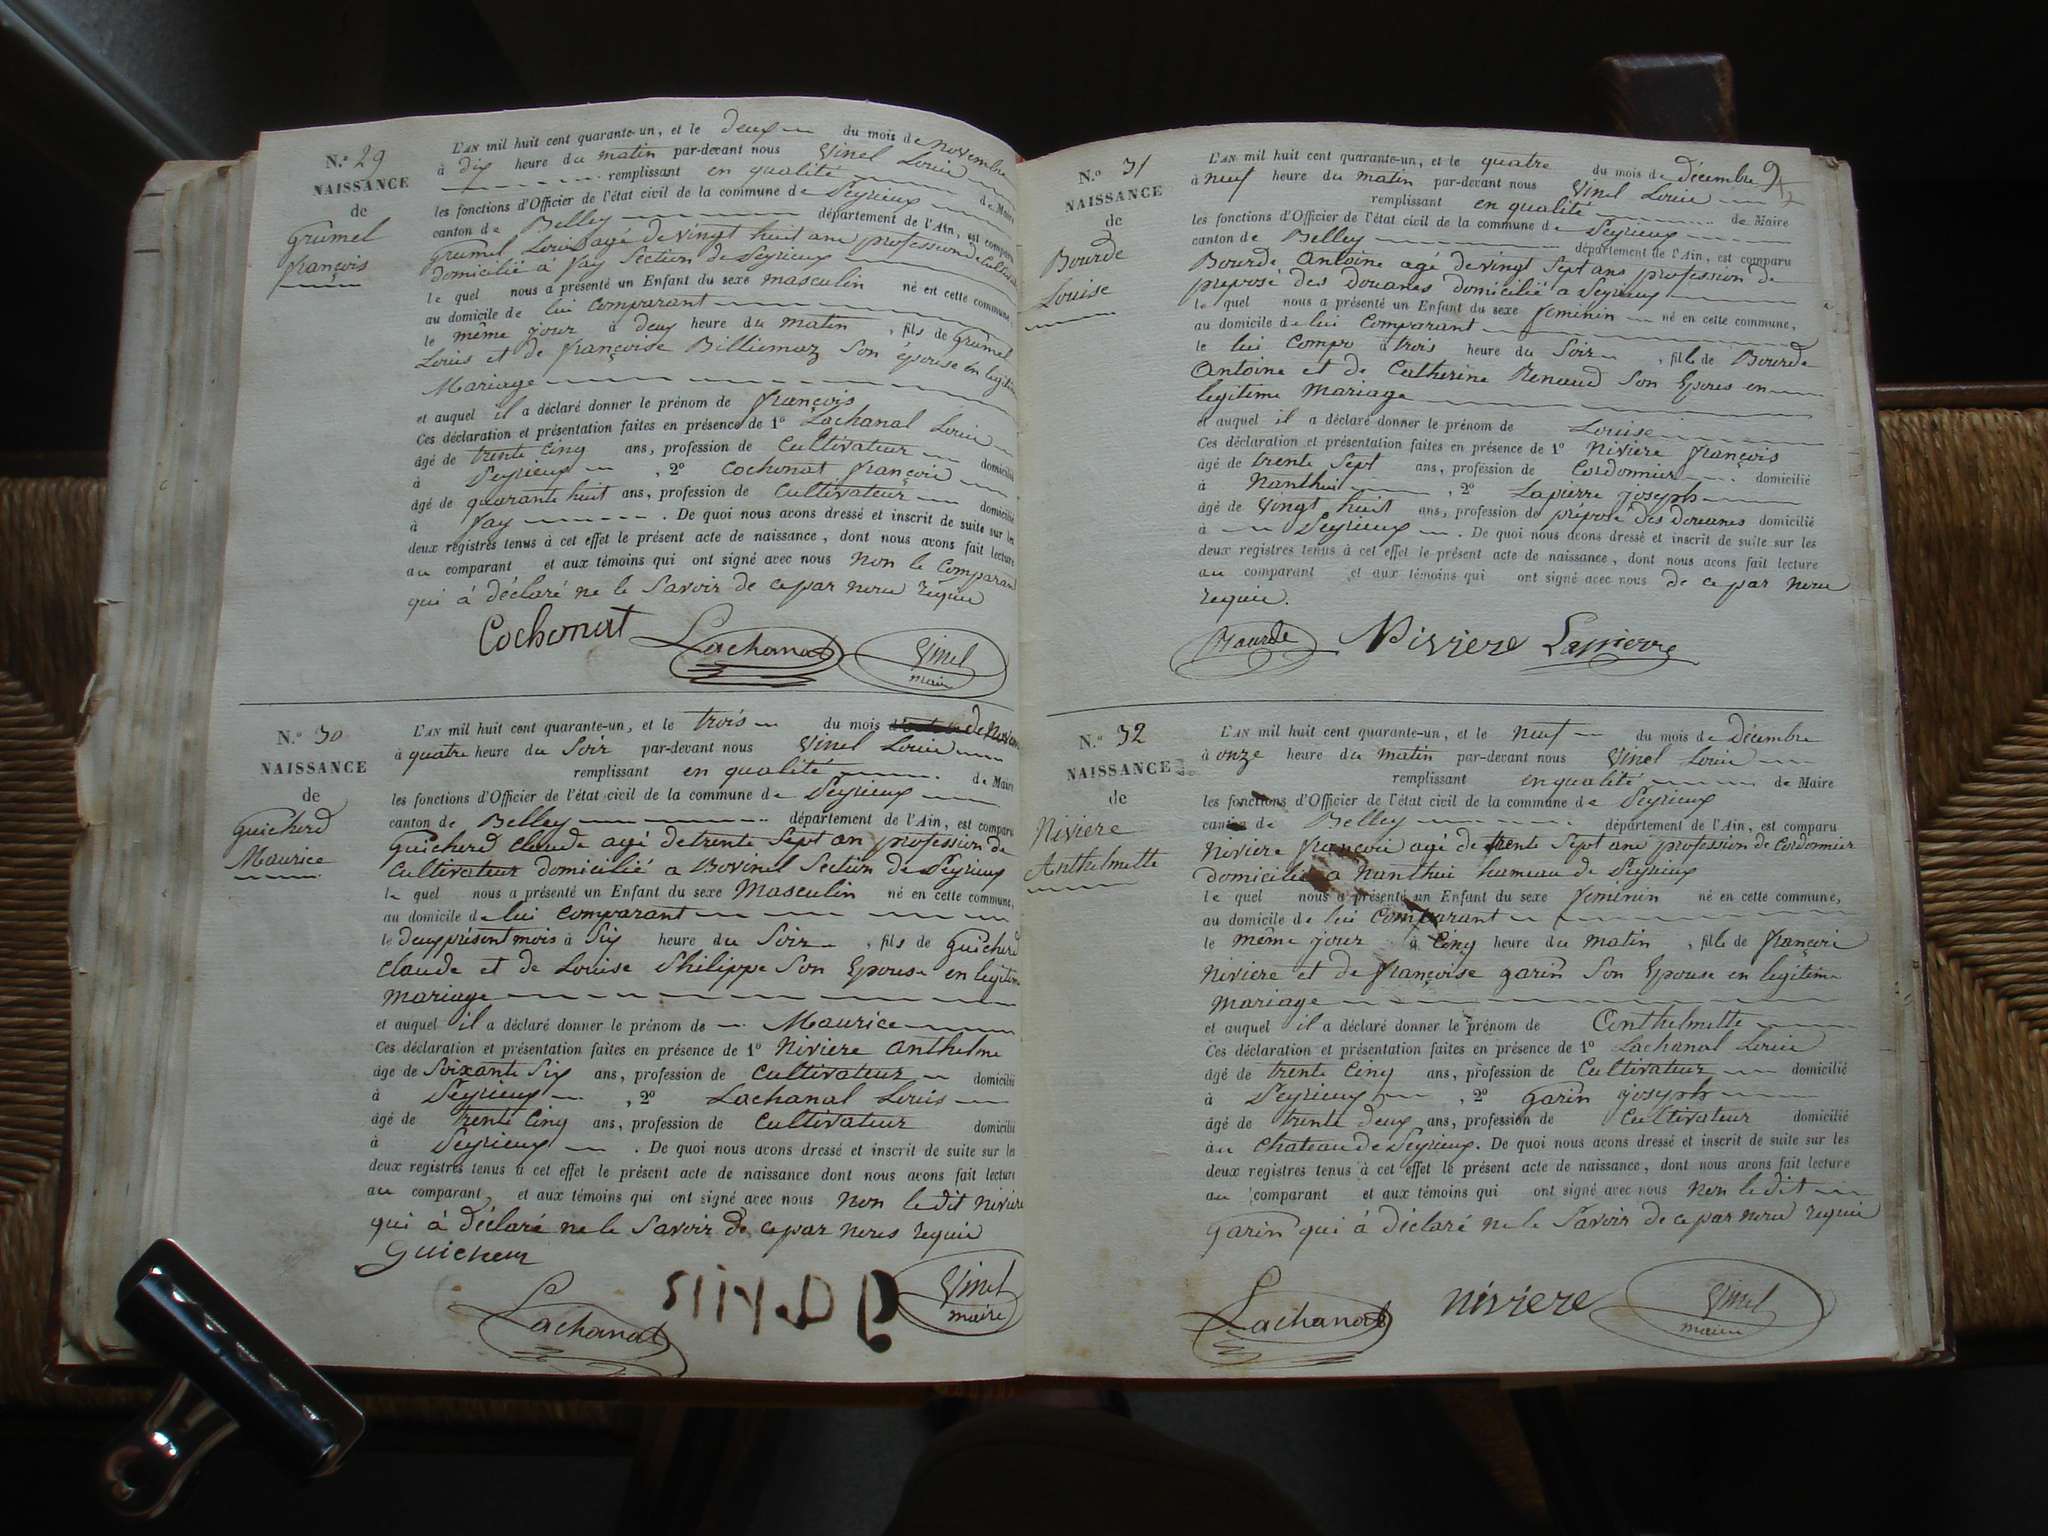 N.° 29
NAISSANCE
de
Grumel
françois
L'AN mil huit cent quarante-un, et le deux du mois de novembre
à dix heure du matin par-devant nous Vinel Louis
remplissant en qualité de Maire
les fonctions d'Officier de l'état civil de la commune de Peyrieux
canton de Belley département de l'Ain, est comparu
Grumel Louis agé de vingt huit ans profession de Cultivat
domicilié à fay Section de Peyrieux
le quel nous a présenté un Enfant du sexe masculin né en cette commune,
au domicile de lui Comparant
le même jour à deux heure du matin, fils de Grumel
Louis et de françoise Billiemaz Son épouse en legitim
Mariage
et auquel il a déclaré donner le prénom de françois
Ces déclaration et présentation faites en présence de 1° Lachanal Louis
âgé de trente Cinq ans, profession de Cultivateur domicilié
à Peyrieux, 2° Cochonat françois
âgé de quarante huit ans, profession de Cultivateur domicilié
à fay. De quoi nous avons dressé et inscrit de suite sur les
deux registres tenus à cet effet le présent acte de naissance, dont nous avons fait lecture
au comparant et aux témoins qui ont signé avec nous Non le Comparant
qui à déclaré ne le Savoir de ce par nous requis
Cochonat Lachanal Vinel
maire
N.° 30
NAISSANCE
de
Guicherd
Maurice
L'AN mil huit cent quarante-un, et le trois du mois de Novem
à quatre heure du Soir par-devant nous Vinel Louis
remplissant en qualité de Maire
les fonctions d'Officier de l'état civil de la commune de Peyrieux
canton de Belley département de l'Ain, est comparu
Guicherd Claude agé de trente Sept an profession de
Cultivateur domicilié a Bovinel Section de Peyrieux
le quel nous a présenté un Enfant du sexe Masculin né en cette commune,
au domicile de lui Comparant
le deux présent mois à Six heure du Soir, fils de Guicherd
Claude et de Louise Philippe Son Epouse en legitim
mariage
et auquel il a déclaré donner le prénom de Maurice
Ces déclaration et présentation faites en présence de 1° Niviere Anthelme
âgé de Soixante Six ans, profession de Cultivateur domicilié
à Peyrieux, 2° Lachanal Louis
âgé de trente Cinq ans, profession de Cultivateur domicilié
à Peyrieux. De quoi nous avons dressé et inscrit de suite sur les
deux registres tenus à cet effet le présent acte de naissance dont nous avons fait lecture
au comparant, et aux témoins qui ont signé avec nous Non le dit Niviere
qui à déclaré ne le Savoir de ce par nous requis
Guicherd
Lachanal Vinel
maire
N.° 31
NAISSANCE
de
Bourde
Louise
L'AN mil huit cent quarante-un, et le quatre du mois de décembre
à neuf heure du matin par-devant nous Vinel Louis
remplissant en qualité de Maire
les fonctions d'Officier de l'état civil de la commune de Peyrieux
canton de Belley département de l'Ain, est comparu
Bourde Antoine agé de vingt Sept ans profession de
preposé des douanes domicilié a Peyrieux
le quel nous a présenté un Enfant du sexe feminin né en cette commune,
au domicile de lui Comparant
le lui Compo à trois heure du Soir, fille de Bourde
Antoine et de Catherine Renaud Son Epous en
legitime Mariage
et auquel il a déclaré donner le prénom de Louise
Ces déclaration et présentation faites en présence de 1° Niviere françois
âgé de trente Sept ans, profession de Cordonnier domicilié
à Nanthui, 2° Lapierre joseph
âgé de vingt huit ans, profession de préposé des douanes domicilié
à Peyrieux. De quoi nous avons dressé et inscrit de suite sur les
deux registres tenus à cet effet le présent acte de naissance, dont nous avons fait lecture
au comparant et aux témoins qui ont signé avec nous de ce par nous
requis.
Bourde Niviere Lapierre
N.° 32
NAISSANCE
de
Niviere
Anthelmette
L'AN mil huit cent quarante-un, et le Neuf du mois de décembre
à onze heure du matin par-devant nous Vinel Louis
remplissant en qualité de Maire
les fonctions d'Officier de l'état civil de la commune de Peyrieux
canton de Belley département de l'Ain, est comparu
Niviere françois agé de trente Sept ans profession de Cordonnier
domicilié a Nanthui hameau de Peyrieux
le quel nous a présenté un Enfant du sexe feminin né en cette commune,
au domicile de lui Comparant
le même jour à Cinq heure du matin, fille de françois
Niviere et de françoise garin Son Epouse en legitime
Mariage
et auquel il a déclaré donner le prénom de Anthelmette
Ces déclaration et présentation faites en présence de 1° Lachanal Louis
âgé de trente Cinq ans, profession de Cultivateur domicilié
à Peyrieux, 2° garin joseph
âgé de trente deux ans, profession de Cultivateur domicilié
au Chateau de Peyrieux. De quoi nous avons dressé et inscrit de suite sur les
deux registres tenus à cet effet le présent acte de naissance, dont nous avons fait lecture
au comparant et aux témoins qui ont signé avec nous Non le dit
garin qui à déclaré ne le Savoir de ce par nous requis
Lachanal niviere Vinel
maire